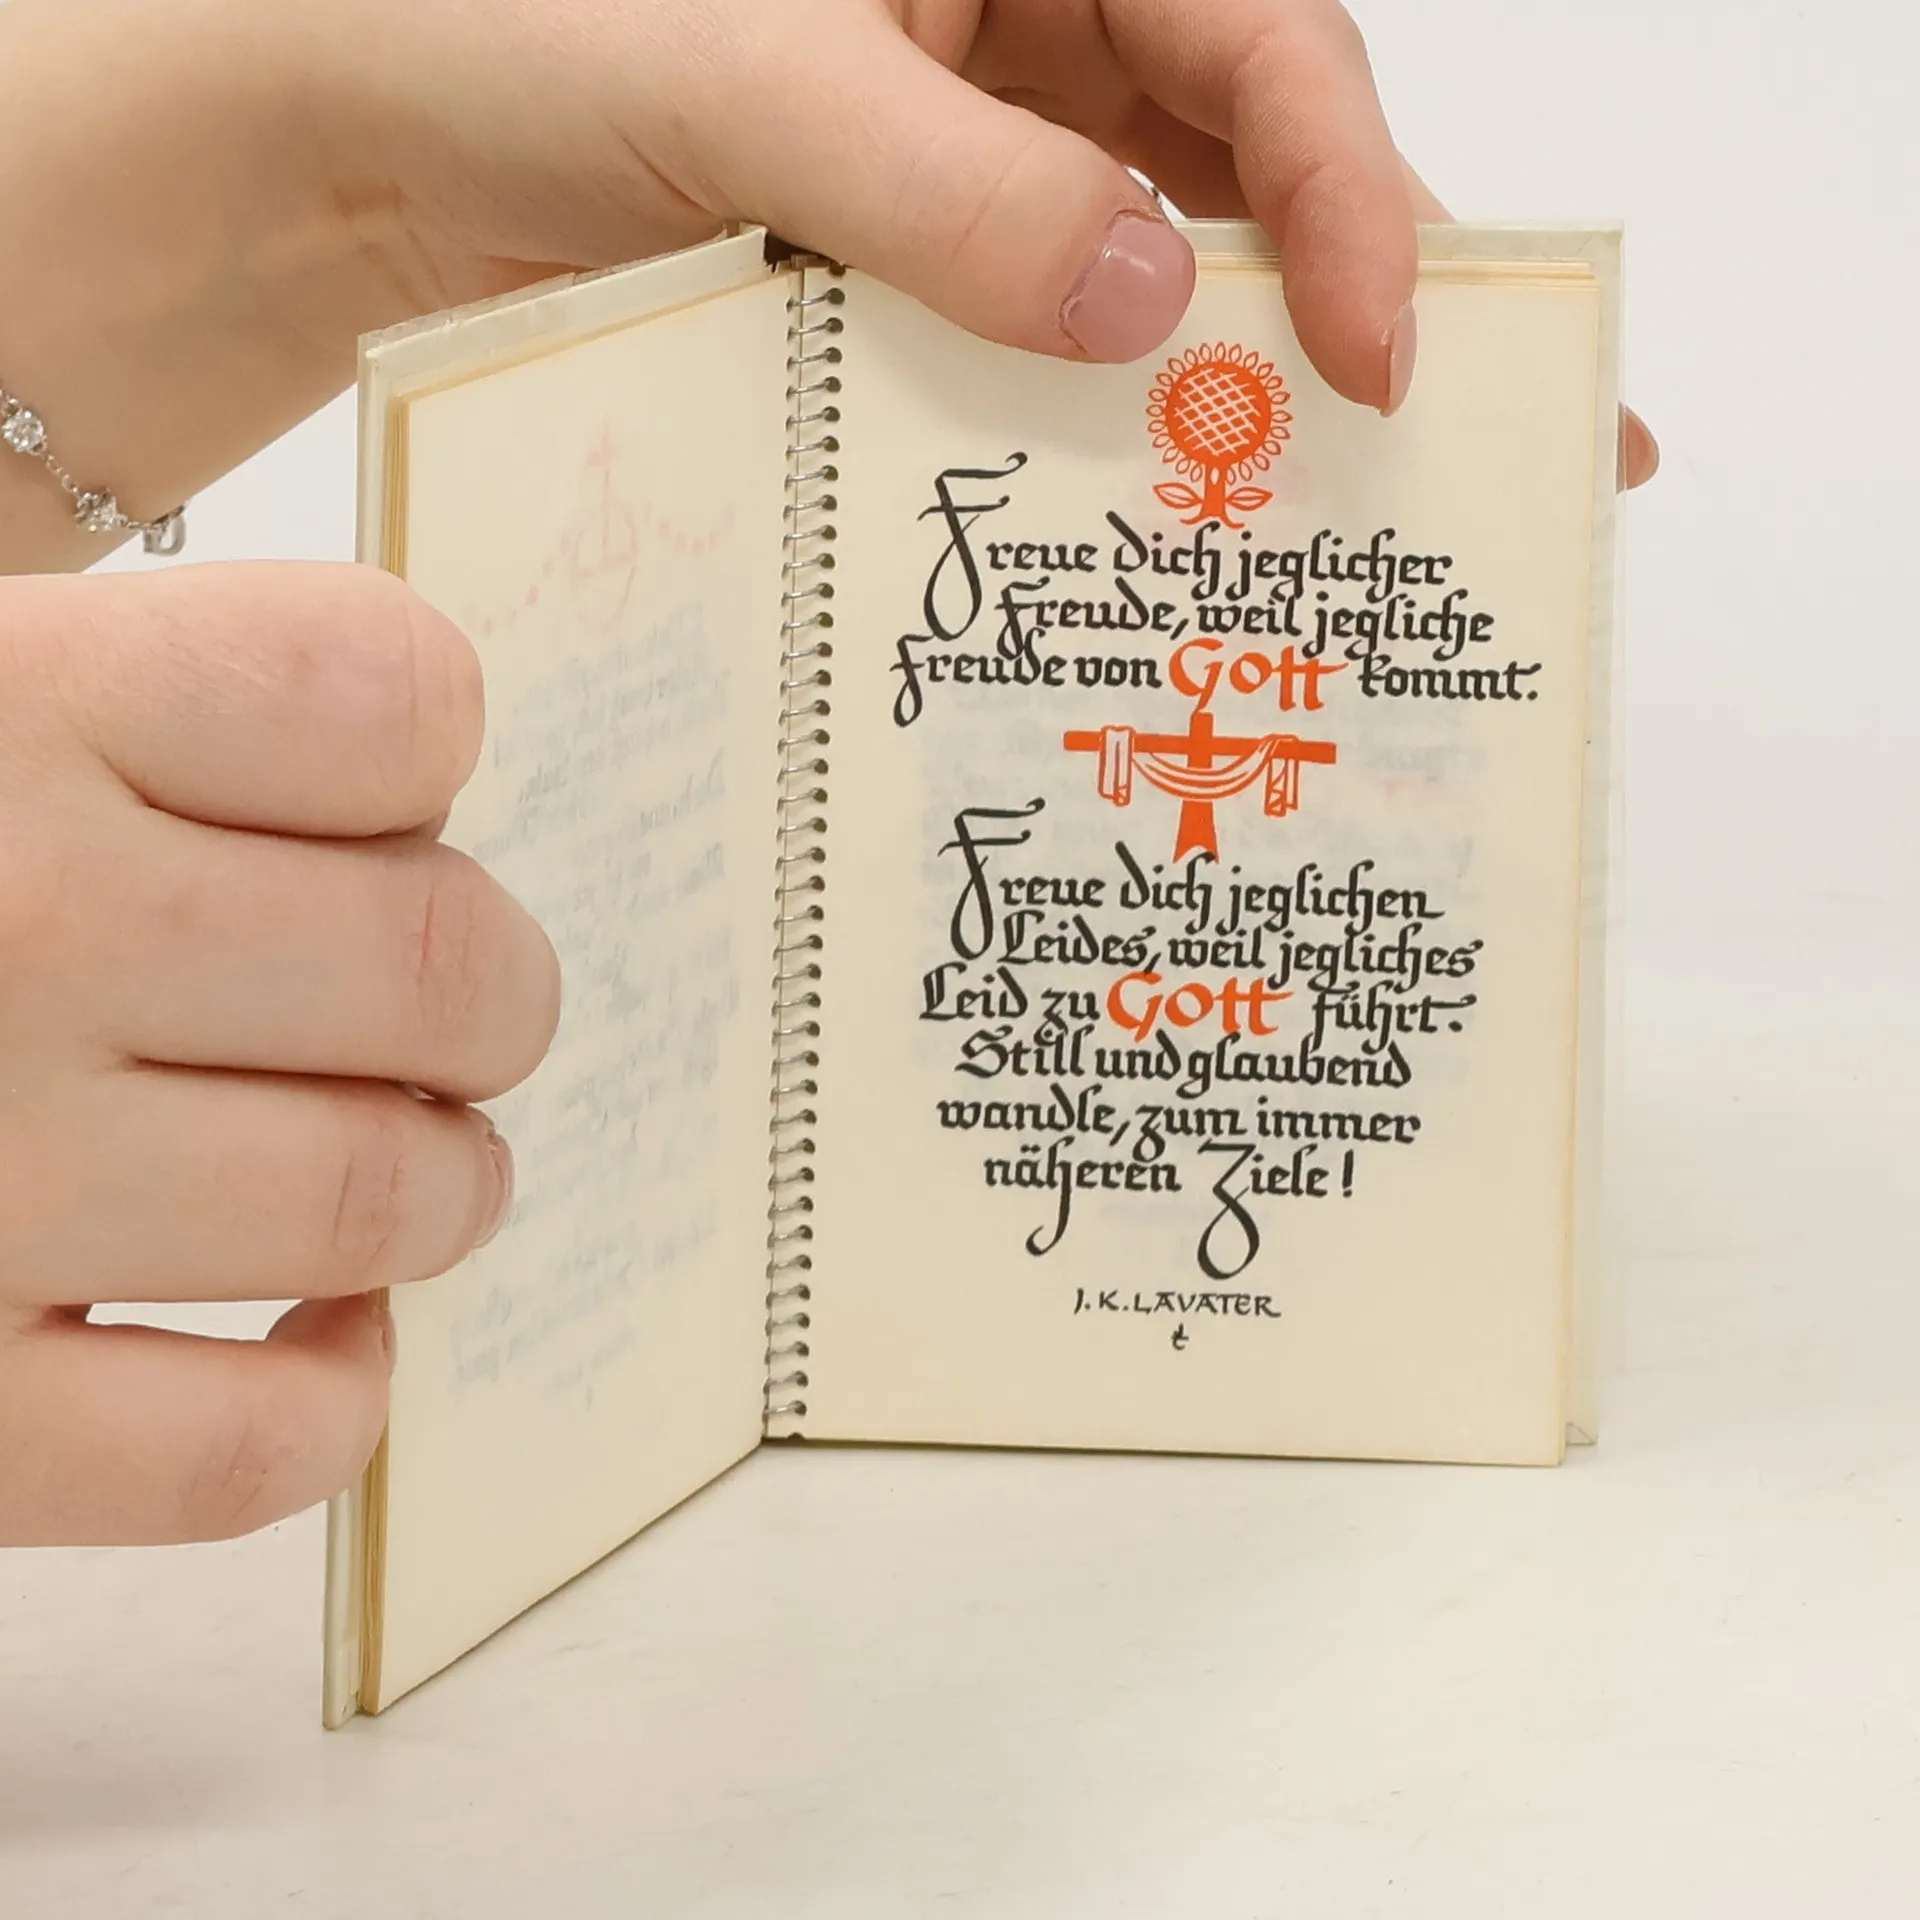 Freue dich jeglicher
Freude, weil jegliche
Freude von Gott kommt.
Freue dich jeglichen
Leides, weil jegliches
Leid zu Gott führt.
Still und glaubend
wandle, zum immer
näheren Ziele!
J. K. LAVATER